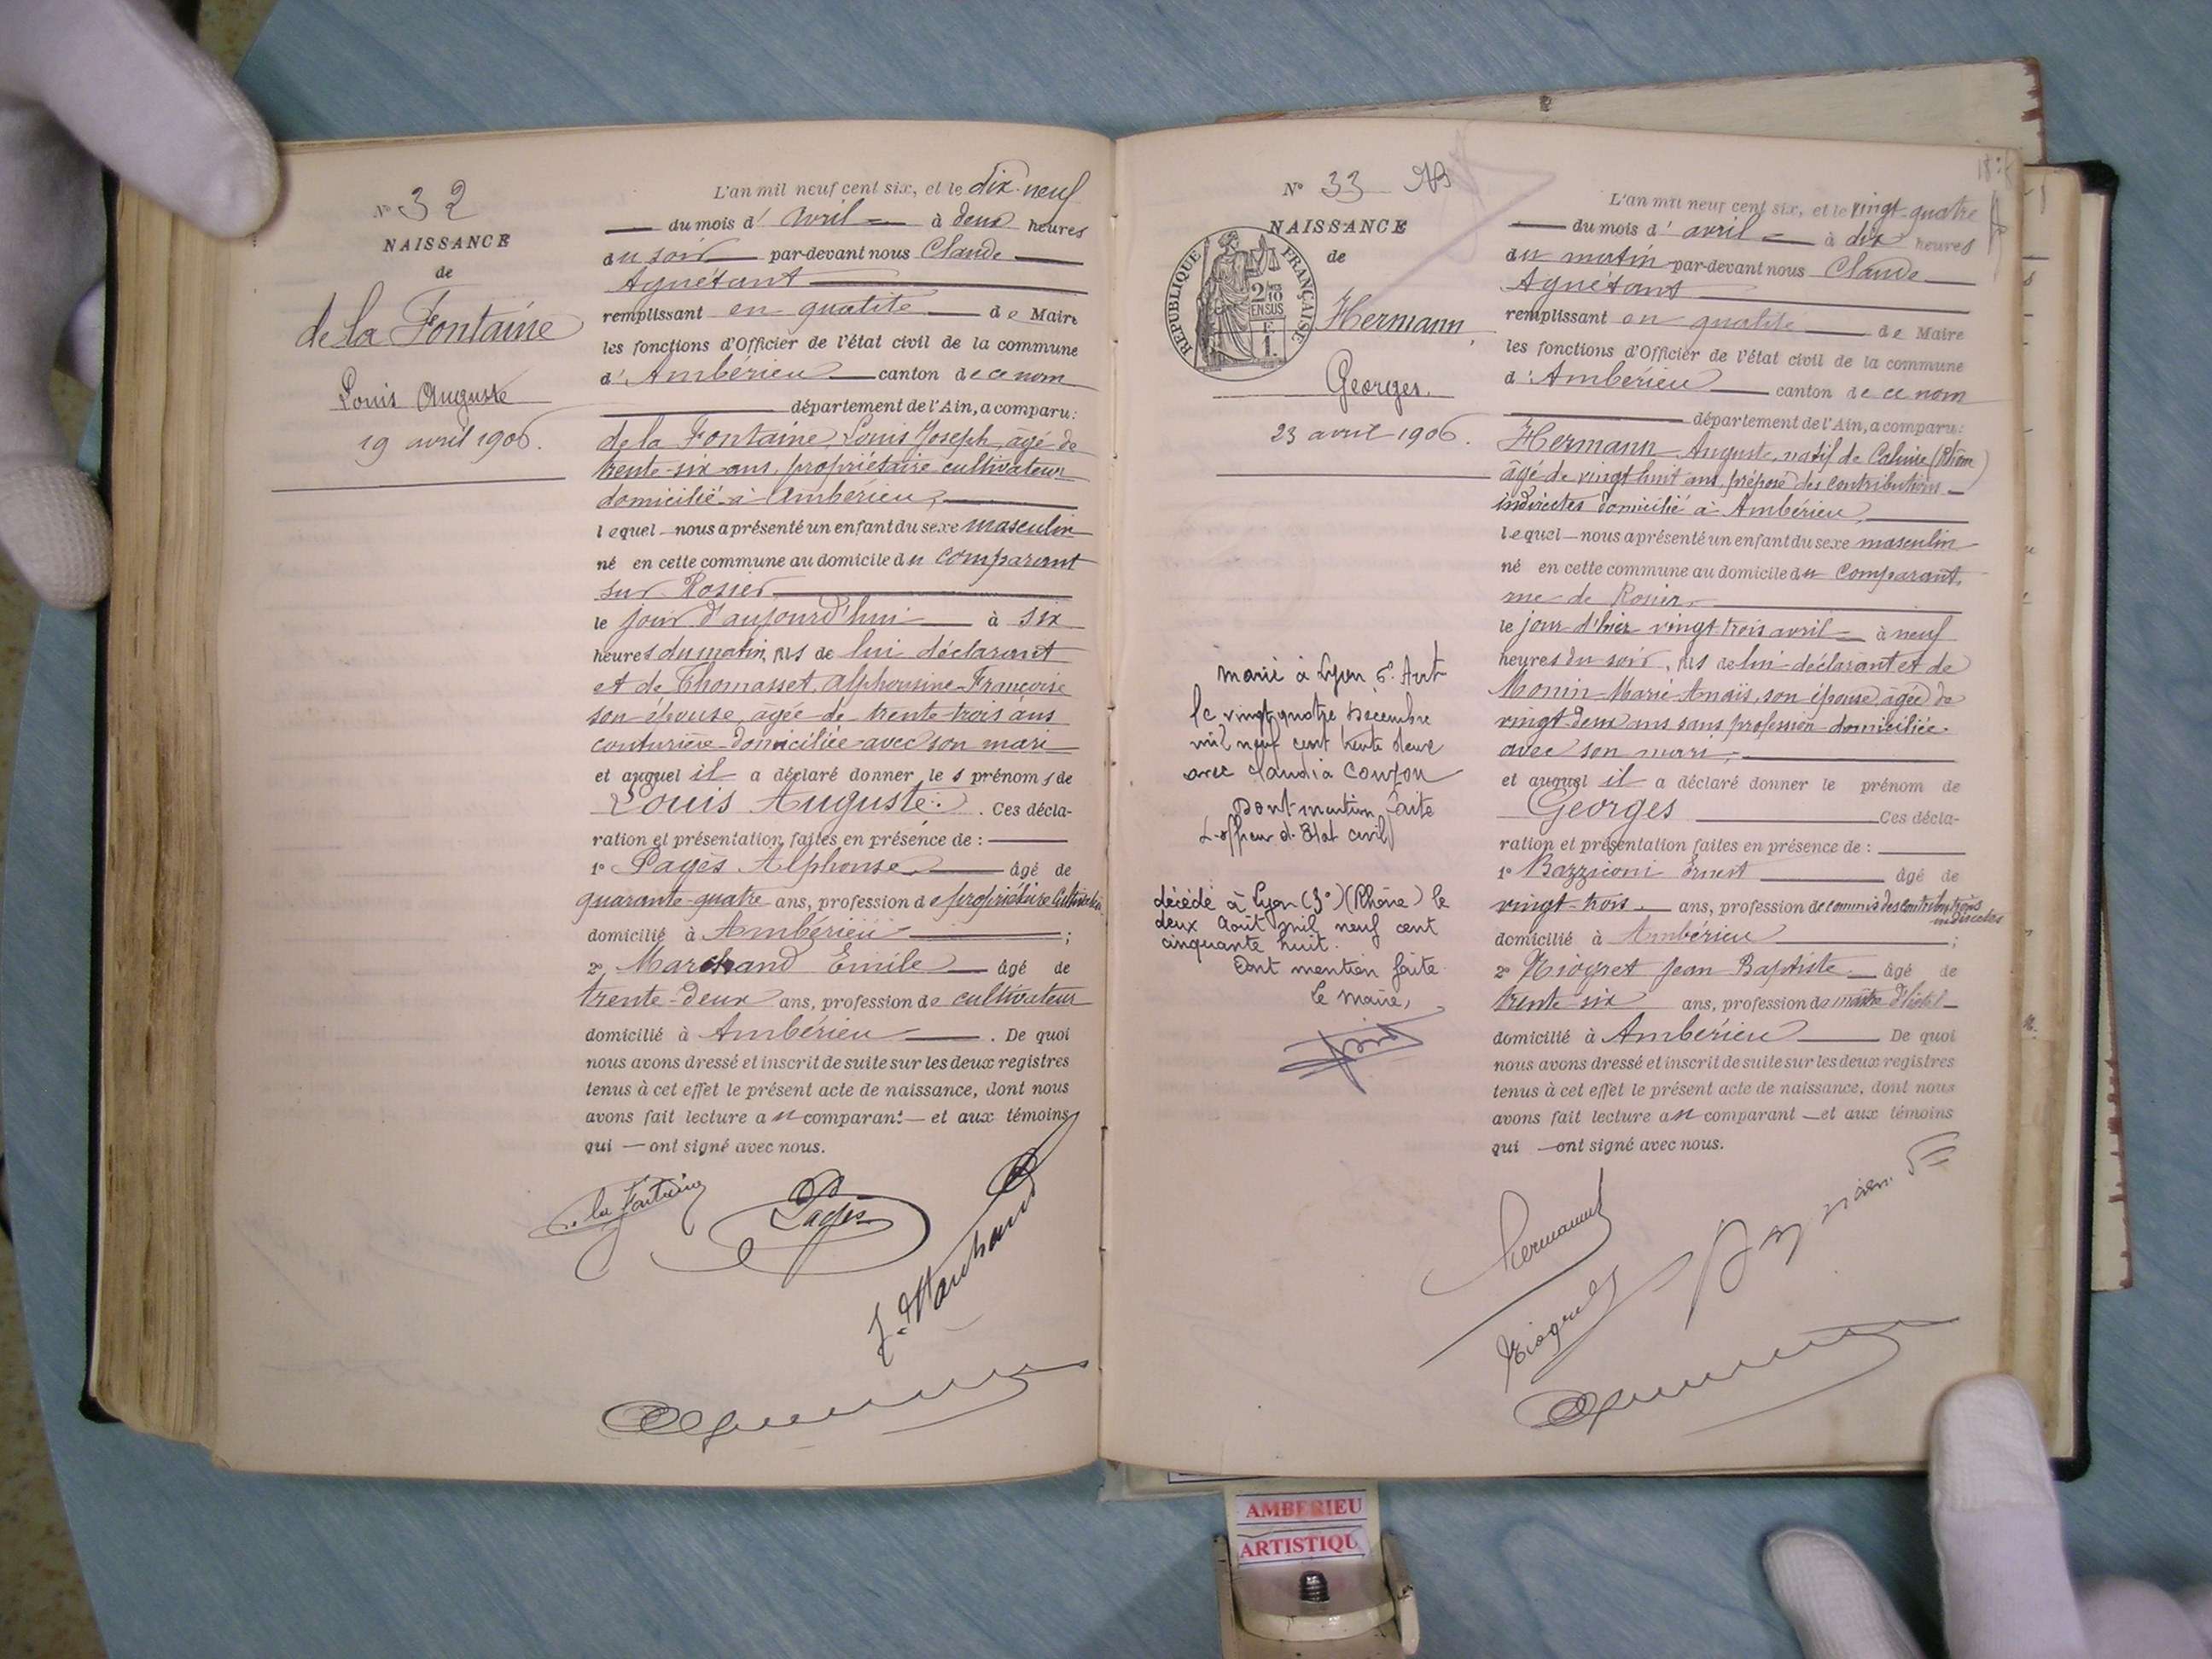 N° 32
NAISSANCE
de
de la Fontaine
Louis Auguste
19 avril 1906.
L'an mil neuf cent six, et le dix-neuf
du mois d'avril à deux heures
du soir par-devant nous Claude
Agnétant
remplissant en qualité de Maire
les fonctions d'Officier de l'état civil de la commune
d'Ambérieu canton de ce nom
département de l'Ain, a comparu:
de la Fontaine Louis Joseph, âgé de
trente-six ans, propriétaire cultivateur
domicilié à Ambérieu,
lequel nous a présenté un enfant du sexe masculin
né en cette commune au domicile du comparant
sur Rosier
le jour d'aujourd'hui à six
heures du matin, fils de lui déclarant
et de Thomasset, Alphonsine-Françoise
son épouse, âgée de trente-trois ans
couturière domiciliée avec son mari
et auquel il a déclaré donner les prénoms de
Louis Auguste. Ces décla-
ration et présentation faites en présence de :
1° Pagès Alphonse âgé de
quarante-quatre ans, profession de propriétaire cultivateur
domicilié à Ambérieu ;
2° Marchand Emile âgé de
trente-deux ans, profession de cultivateur
domicilié à Ambérieu. De quoi
nous avons dressé et inscrit de suite sur les deux registres
tenus à cet effet le présent acte de naissance, dont nous
avons fait lecture au comparant et aux témoins
qui ont signé avec nous.
de la Fontaine
Pagès
Marchand
N° 33
NAISSANCE
de
RÉPUBLIQUE FRANÇAISE
2/10 EN SUS
Hermann,
Georges.
23 avril 1906.
marié à Lyon 6e Arrt
le vingt quatre Décembre
mil neuf cent trente deux
avec Claudia Couzon
Dont mention faite
L'officier d'Etat civil
décédé à Lyon (3°) (Rhône) le
deux Août mil neuf cent
cinquante huit.
Dont mention faite
Le Maire,
L'an mil neuf cent six, et le vingt-quatre
du mois d'avril à dix heures
du matin par-devant nous Claude
Agnétant
remplissant en qualité de Maire
les fonctions d'Officier de l'état civil de la commune
d'Ambérieu canton de ce nom
département de l'Ain, a comparu:
Hermann Auguste, natif de Caluire (Rhône)
âgé de vingt huit ans, préposé des contributions
indirectes domicilié à Ambérieu,
lequel nous a présenté un enfant du sexe masculin
né en cette commune au domicile du comparant,
rue de
le jour d'hier vingt-trois avril à neuf
heures du soir, fils de lui déclarant et de
Monin Marie Anaïs, son épouse, âgée de
vingt-deux ans sans profession domiciliée
avec son mari,
et auquel il a déclaré donner le prénom de
Georges Ces décla-
ration et présentation faites en présence de :
1° Bazziconi Ernest âgé de
vingt-trois ans, profession de commis des contributions
indirectes
domicilié à Ambérieu ;
2° Niogret Jean Baptiste âgé de
trente-six ans, profession de maître d'hôtel
domicilié à Ambérieu De quoi
nous avons dressé et inscrit de suite sur les deux registres
tenus à cet effet le présent acte de naissance, dont nous
avons fait lecture au comparant et aux témoins
qui ont signé avec nous.
Hermann
Niogret
AMBERIEU
ARTISTIQU